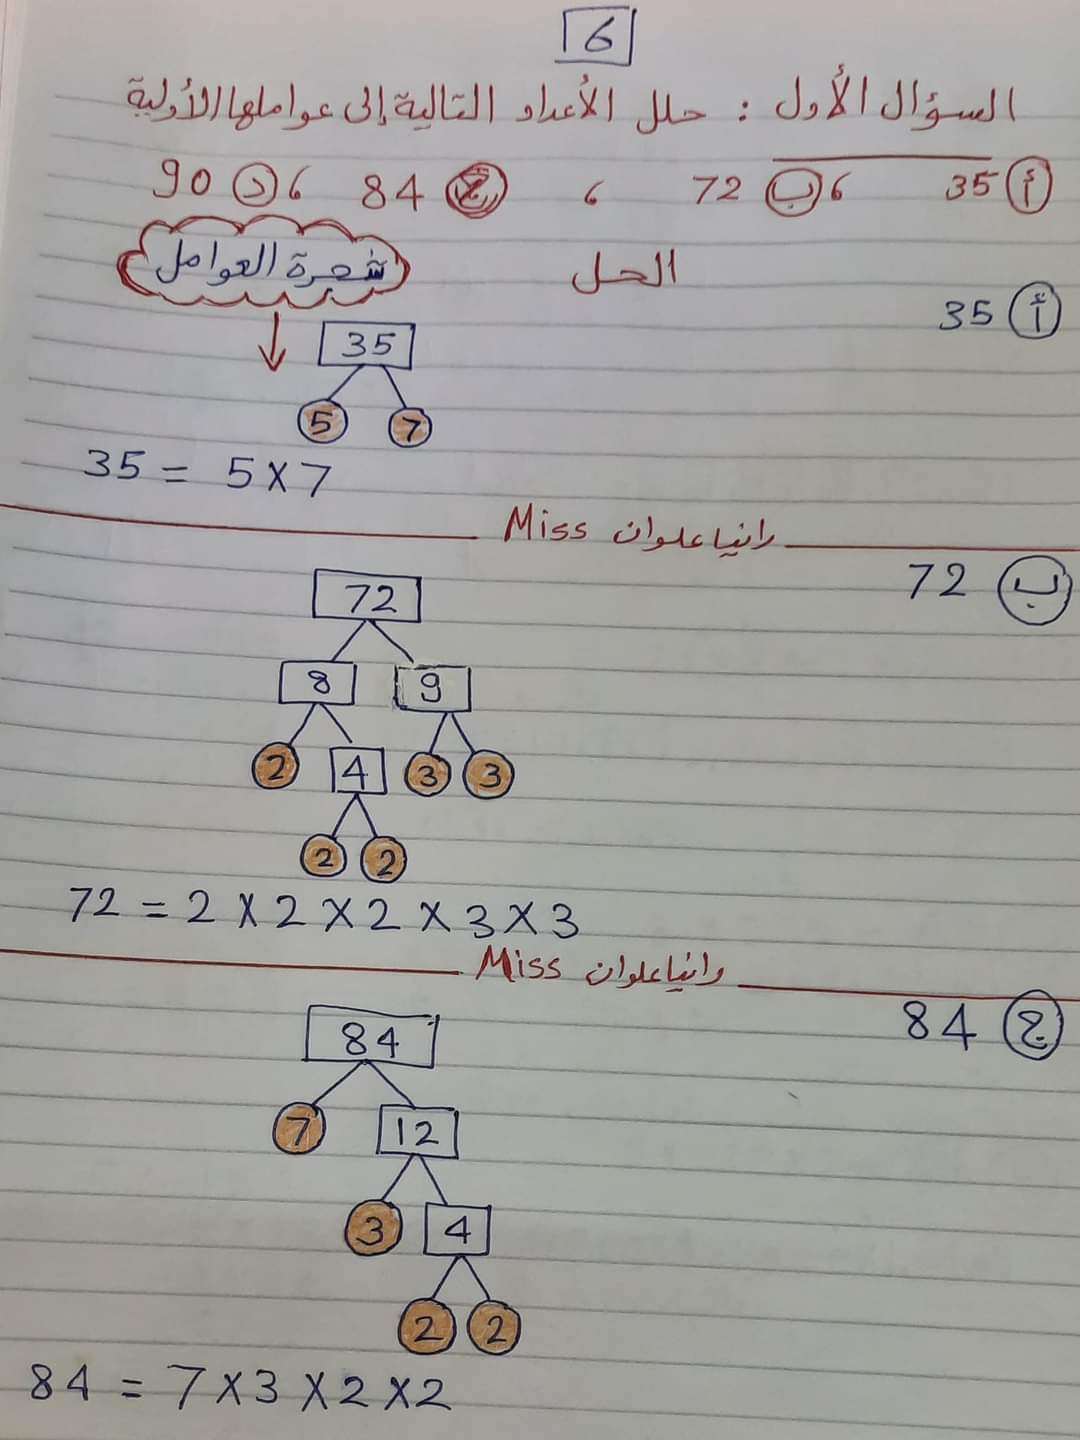 6
السؤال الأول : حلل الأعداد التالية إلى عواملها الأولية
أ 35 ، ب 72 ، ج 84 ، د 90
الحل
شجرة العوامل
أ 35
35
5 7
35 = 5 X 7
Miss رانيا علوان
ب 72
72
8 9
2 4 3 3
2 2
72 = 2 X 2 X 2 X 3 X 3
Miss رانيا علوان
ج 84
84
7 12
3 4
2 2
84 = 7 X 3 X 2 X 2